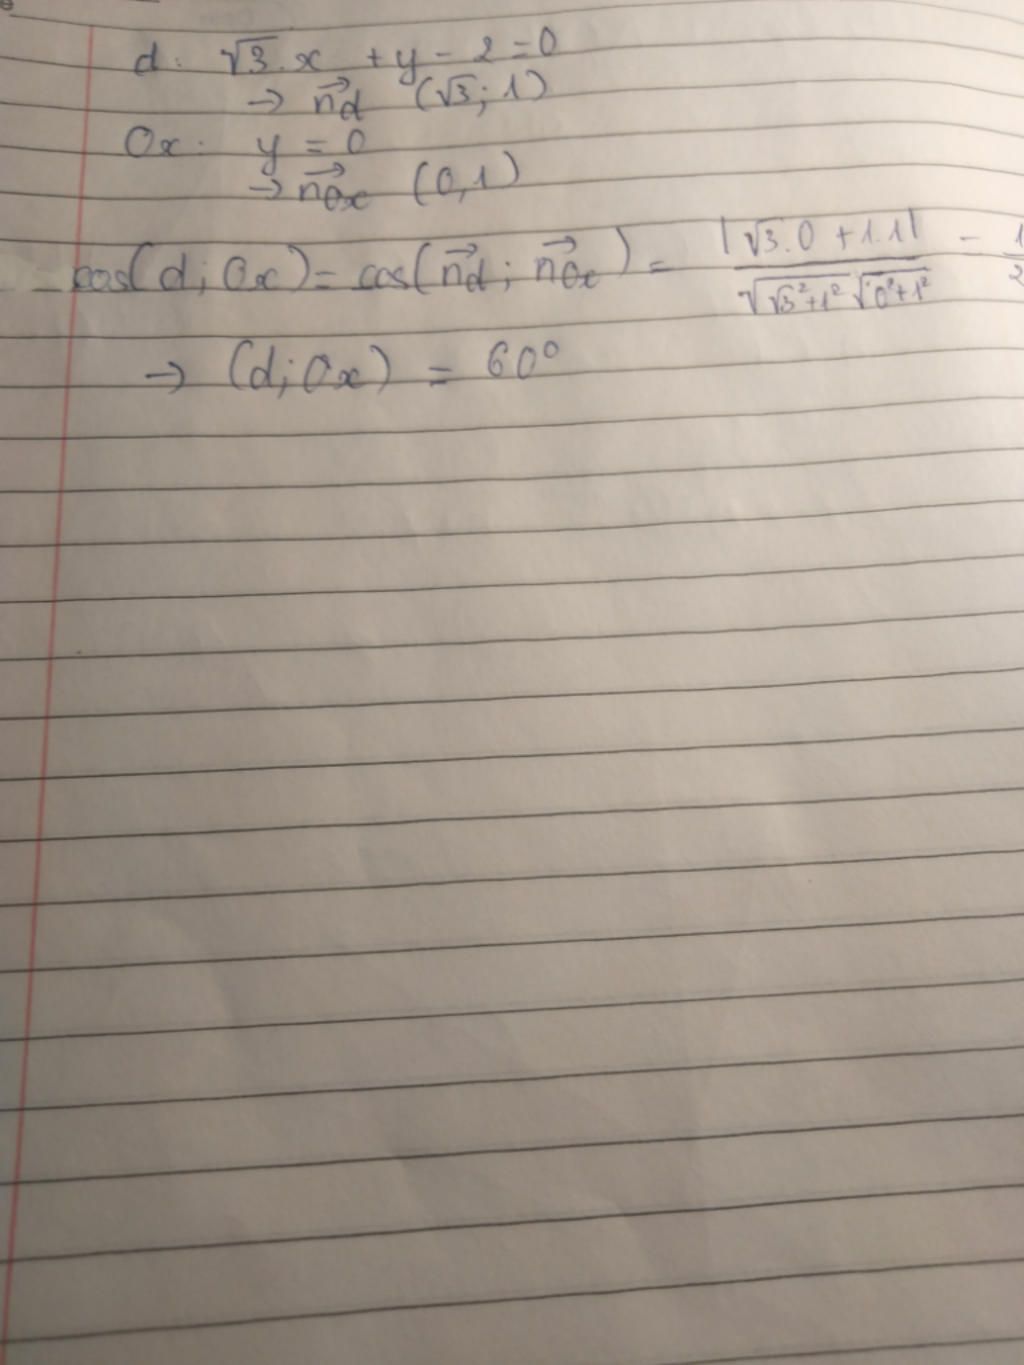 d: √3.x + y - 2 = 0
→ n⃗d (√3; 1)
Ox: y = 0
→ n⃗Ox (0,1)
cos(d; Ox) = cos(n⃗d; n⃗Ox) = |√3.0 + 1.1| / √(√3² + 1²) √(0² + 1²) = 1/2
→ (d; Ox) = 60°